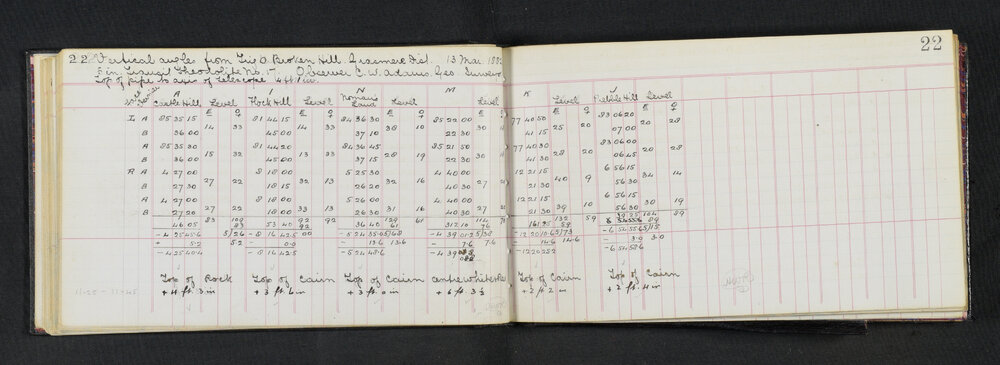 22 Vertical angles from Trig O Broken Hill Grasmere Dist. 13 Mar. 188 22
5 in Transit Theodolite No. 5 Observer C. W. Adams Geo. Survey
Top of pipe to axis of telescope
A I N M K J
Castle Hill Level Flock Hill Level Nomans Land Level Level Level Pebble Hill Level
E O E O E O E E O E O
I A 85 35 15 81 44 15 84 36 30 85 22 00 77 40 50 83 06 20
14 33 14 33 38 10 30 25 20 20 28
B 36 00 45 00 37 10 22 30 41 15 07 00
A 85 35 30 81 44 20 84 36 45 85 21 50 77 40 30 83 06 00
15 32 13 33 28 19 30 28 20 20 28
B 36 00 45 00 37 15 22 30 41 30 06 45
R A 4 27 00 8 18 00 5 25 30 4 40 00 12 21 15 6 56 15
27 22 32 13 32 16 27 40 9 34 14
B 27 30 18 15 26 20 40 30 21 30 56 30
A 4 27 00 8 18 00 5 26 00 4 40 00 12 21 15 6 56 15
27 22 33 13 31 16 27 39 10 30 19
B 27 20 18 00 26 30 40 30 21 30 56 30
83 109 92 92 129 61 114 132 59 104 89
46 05 83 53 40 92 36 40 61 312 10 161 25 59
- 4 25 45.6 5/26 - 8 16 42.5 00 - 5 24 35.0 5/68 - 4 39 01.2 5/38 - 12 20 10.6 5/73 - 6 54 55.6 5/15
+ 5.2 5.2 - 0.0 - 13.6 13.6 - 7.6 7.6 - 14.6 14.6 - 3.0 3.0
- 4 25 40.4 - 8 16 42.5 - 5 24 48.6 - 4 39 - 12 20 25.2 - 6 54 58.6
Top of Rock Top of Cairn Top of Cairn Centre White Top of Cairn Top of Cairn
+ 4 ft. 3 in + 3 ft. 6 in + 3 ft. 0 in + 6 ft. 3½ + 2 ft. 2 in + 2 ft. 4 in